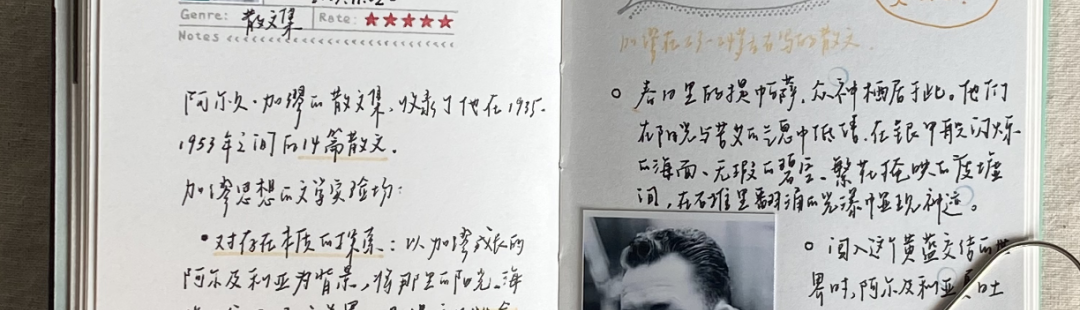 Genre: 散文集 Rate: ★★★★★
Notes
阿尔贝·加缪的散文集,收录了他在1935-
1953年之间的14篇散文.
加缪思想的文学实验场:
• 对存在本质的探索:以加缪成长的
阿尔及利亚为背景,将那里的阳光、海
加缪在23-24岁左右写的散文.
○ 春日里的提帕萨,众神栖居于此。他们
在阳光与苦艾的气息中低语,在银甲般闪烁
的海面、无瑕的碧空、繁花掩映的废墟
间,在石堆里翻涌的光瀑中显现神迹。
○ 闯入这个黄蓝交织的世
界时,阿尔及利亚 吐